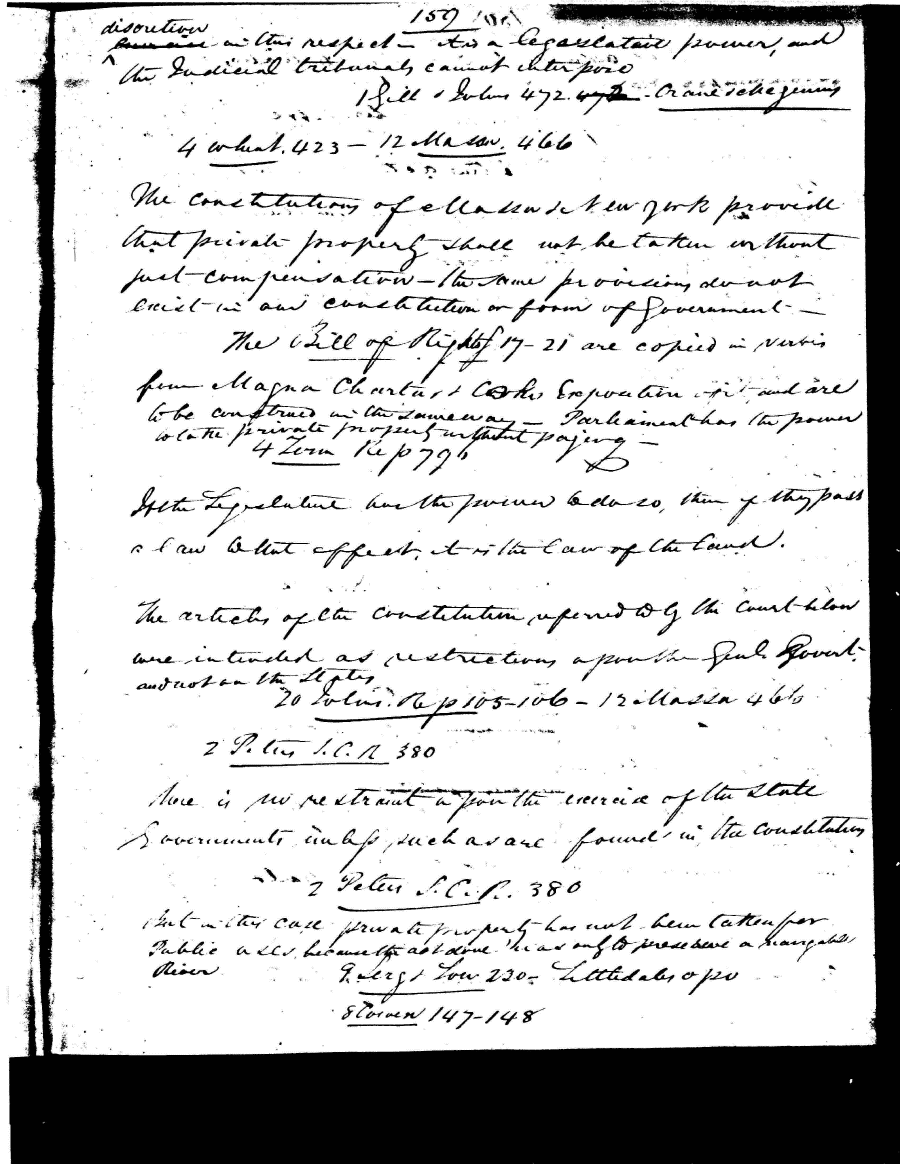 159
discretion
in this respect – It is a legislative power, and
the Judicial tribunals cannot interpose
1 Gill & Johns 472. 472 – Crane & Megennis
4 Wheat. 423 – 12 Massa. 466
The constitutions of Massa & New York provide
that private property shall not be taken without
just compensation – the same provisions do not
exist in our constitution or form of Government –
The Bill of Rights 17–21 are copied in verbis
from Magna Charta & Cokes Exposition of it and are
to be construed in the same way – Parliament has the power
to take private property without paying –
4 Term Rep 796
If the Legislature has the power to do so, then if they pass
a law to that effect, it is the law of the land.
The articles of the constitution referred to by the Court below
were intended as restrictions upon the Genl. Govert.
and not on the States
20 Johns. Rep 105–106 – 12 Massa 466
2 Peters S.C.R 380
there is no restraint upon the exercise of the State
Governments unless such as are found in the constitution
2 Peters S.C.R. 380
But in this case private property has not been taken for
Public uses, because the act done was only to preserve a navigable
River
9. Serg & Low 230 – Littledales opo
8 Cowen 147–148